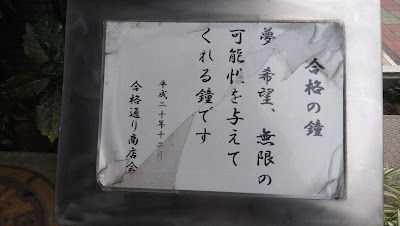 合格の鐘
夢、希望、無限の
可能性を与えて
くれる鐘です
平成二十年十二月
合格通り商店会